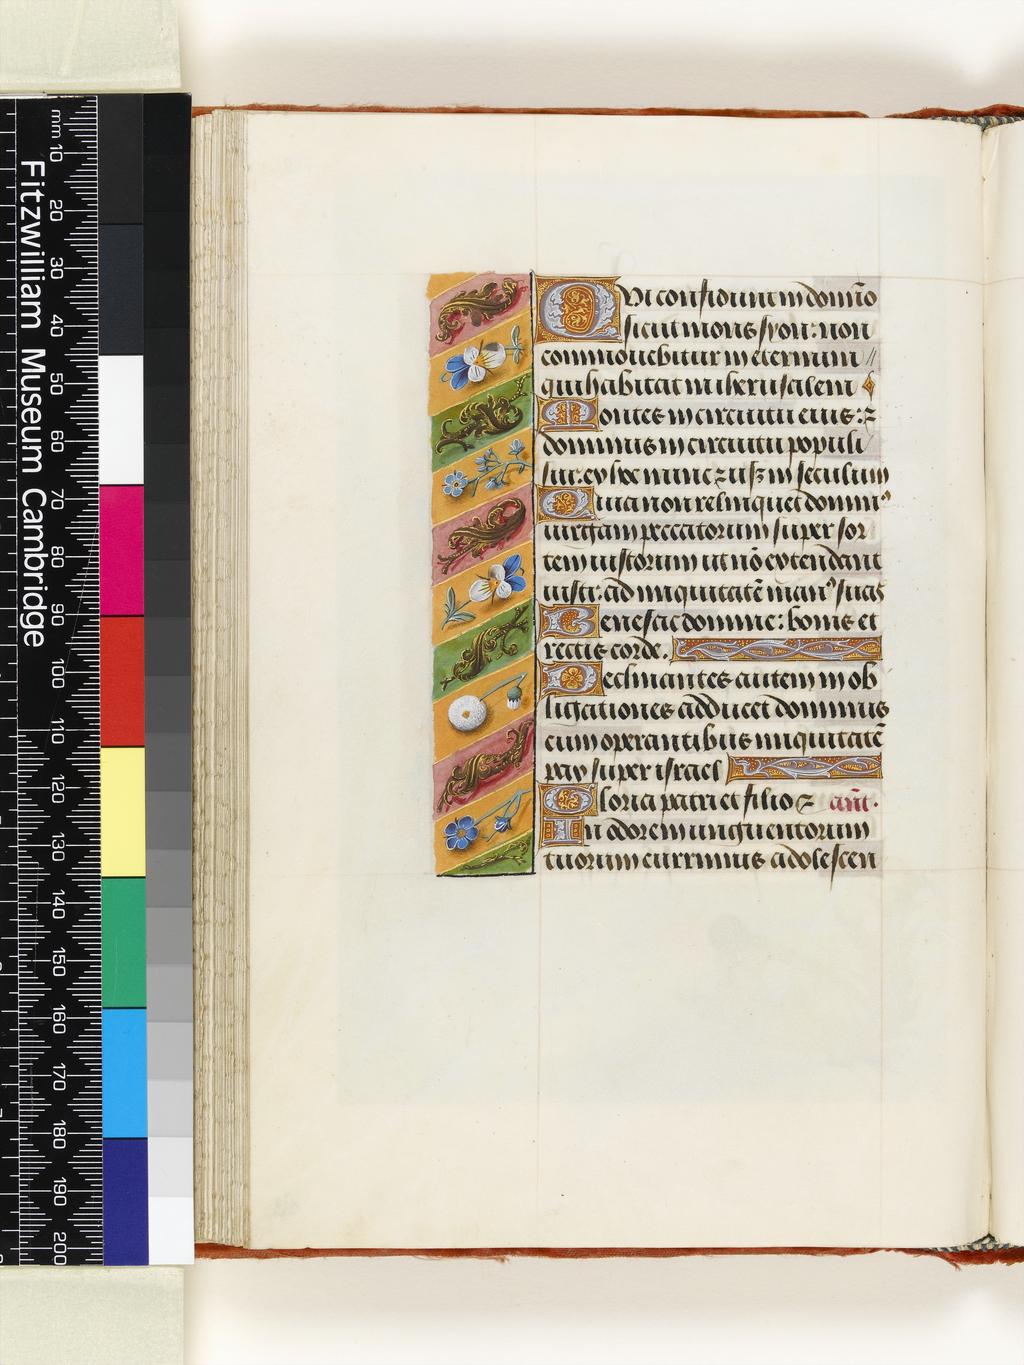 Qui confidunt in domīo
sicut mons syon: non
commouebitur in eternum
qui habitat in iherusalem
Montes in circuitu eius: ⁊
dominus in circuitu populi
sui: ex hoc nunc ⁊ usqꝫ in seculum
Quia non relinquet dominꝰ
uirgam peccatorum super sor
tem iustorum ut nō extendant
iusti: ad iniquitatē manꝰ suas
Benefac domine: bonis et
rectis corde.
Declinantes autem in ob
ligationes adducet dominus
cum operantibus iniquitatē
pax super israel
Gloria patri et filio ⁊ añt.
In odorem unguentorum
tuorum currimus adolescen
Fitzwilliam Museum Cambridge
mm 10 20 30 40 50 60 70 80 90 100 110 120 130 140 150 160 170 180 190 200